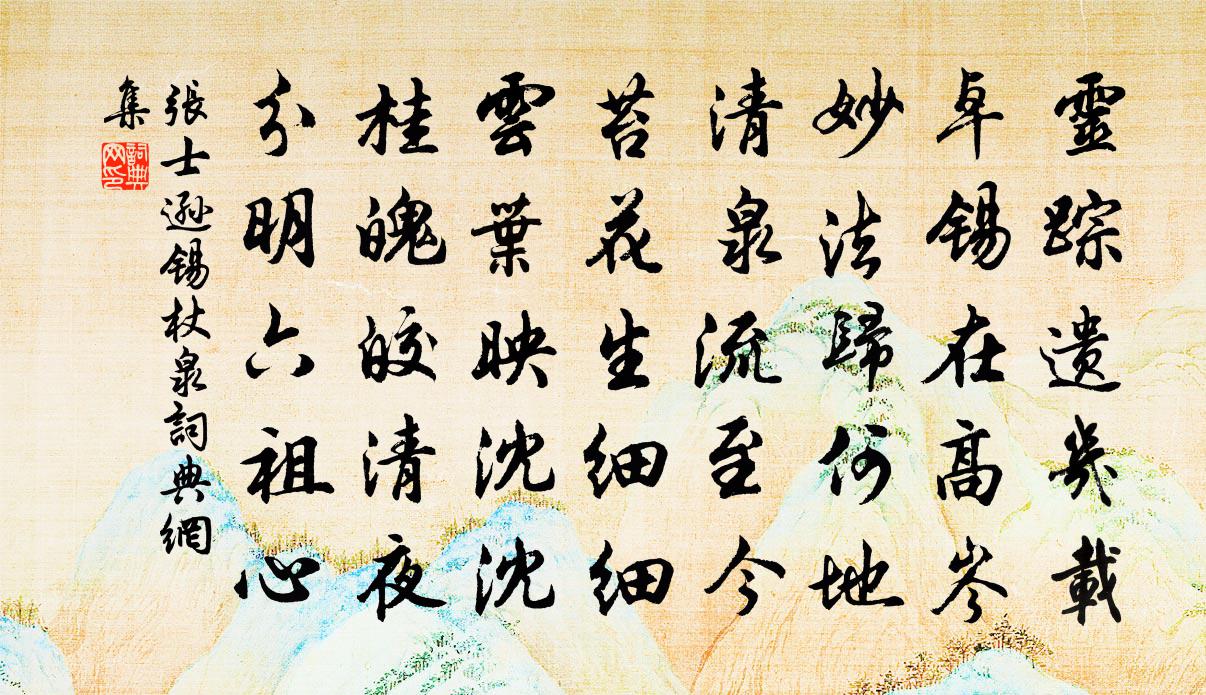 靈踪遺幾載
卓錫在高岑
妙法歸何地
清泉流至今
苔花生細細
雲葉映沈沈
桂魄皎清夜
分明六祖心
張士遜錫杖泉詞典網
集
詞典網印